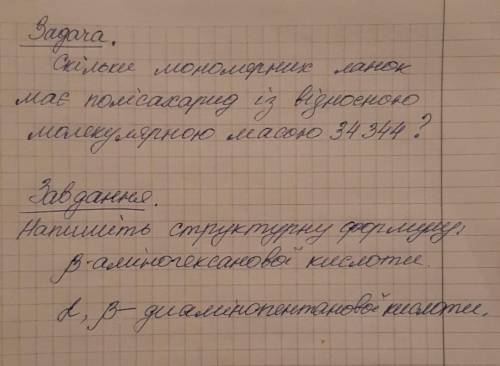 Задача.
Скільки мономерних ланок
має полісахарид із відносною
молекулярною масою 34 344?
Завдання.
Напишіть структурну формулу:
β-аміногексанової кислоти.
α, β- диамінопентанової кислоти.